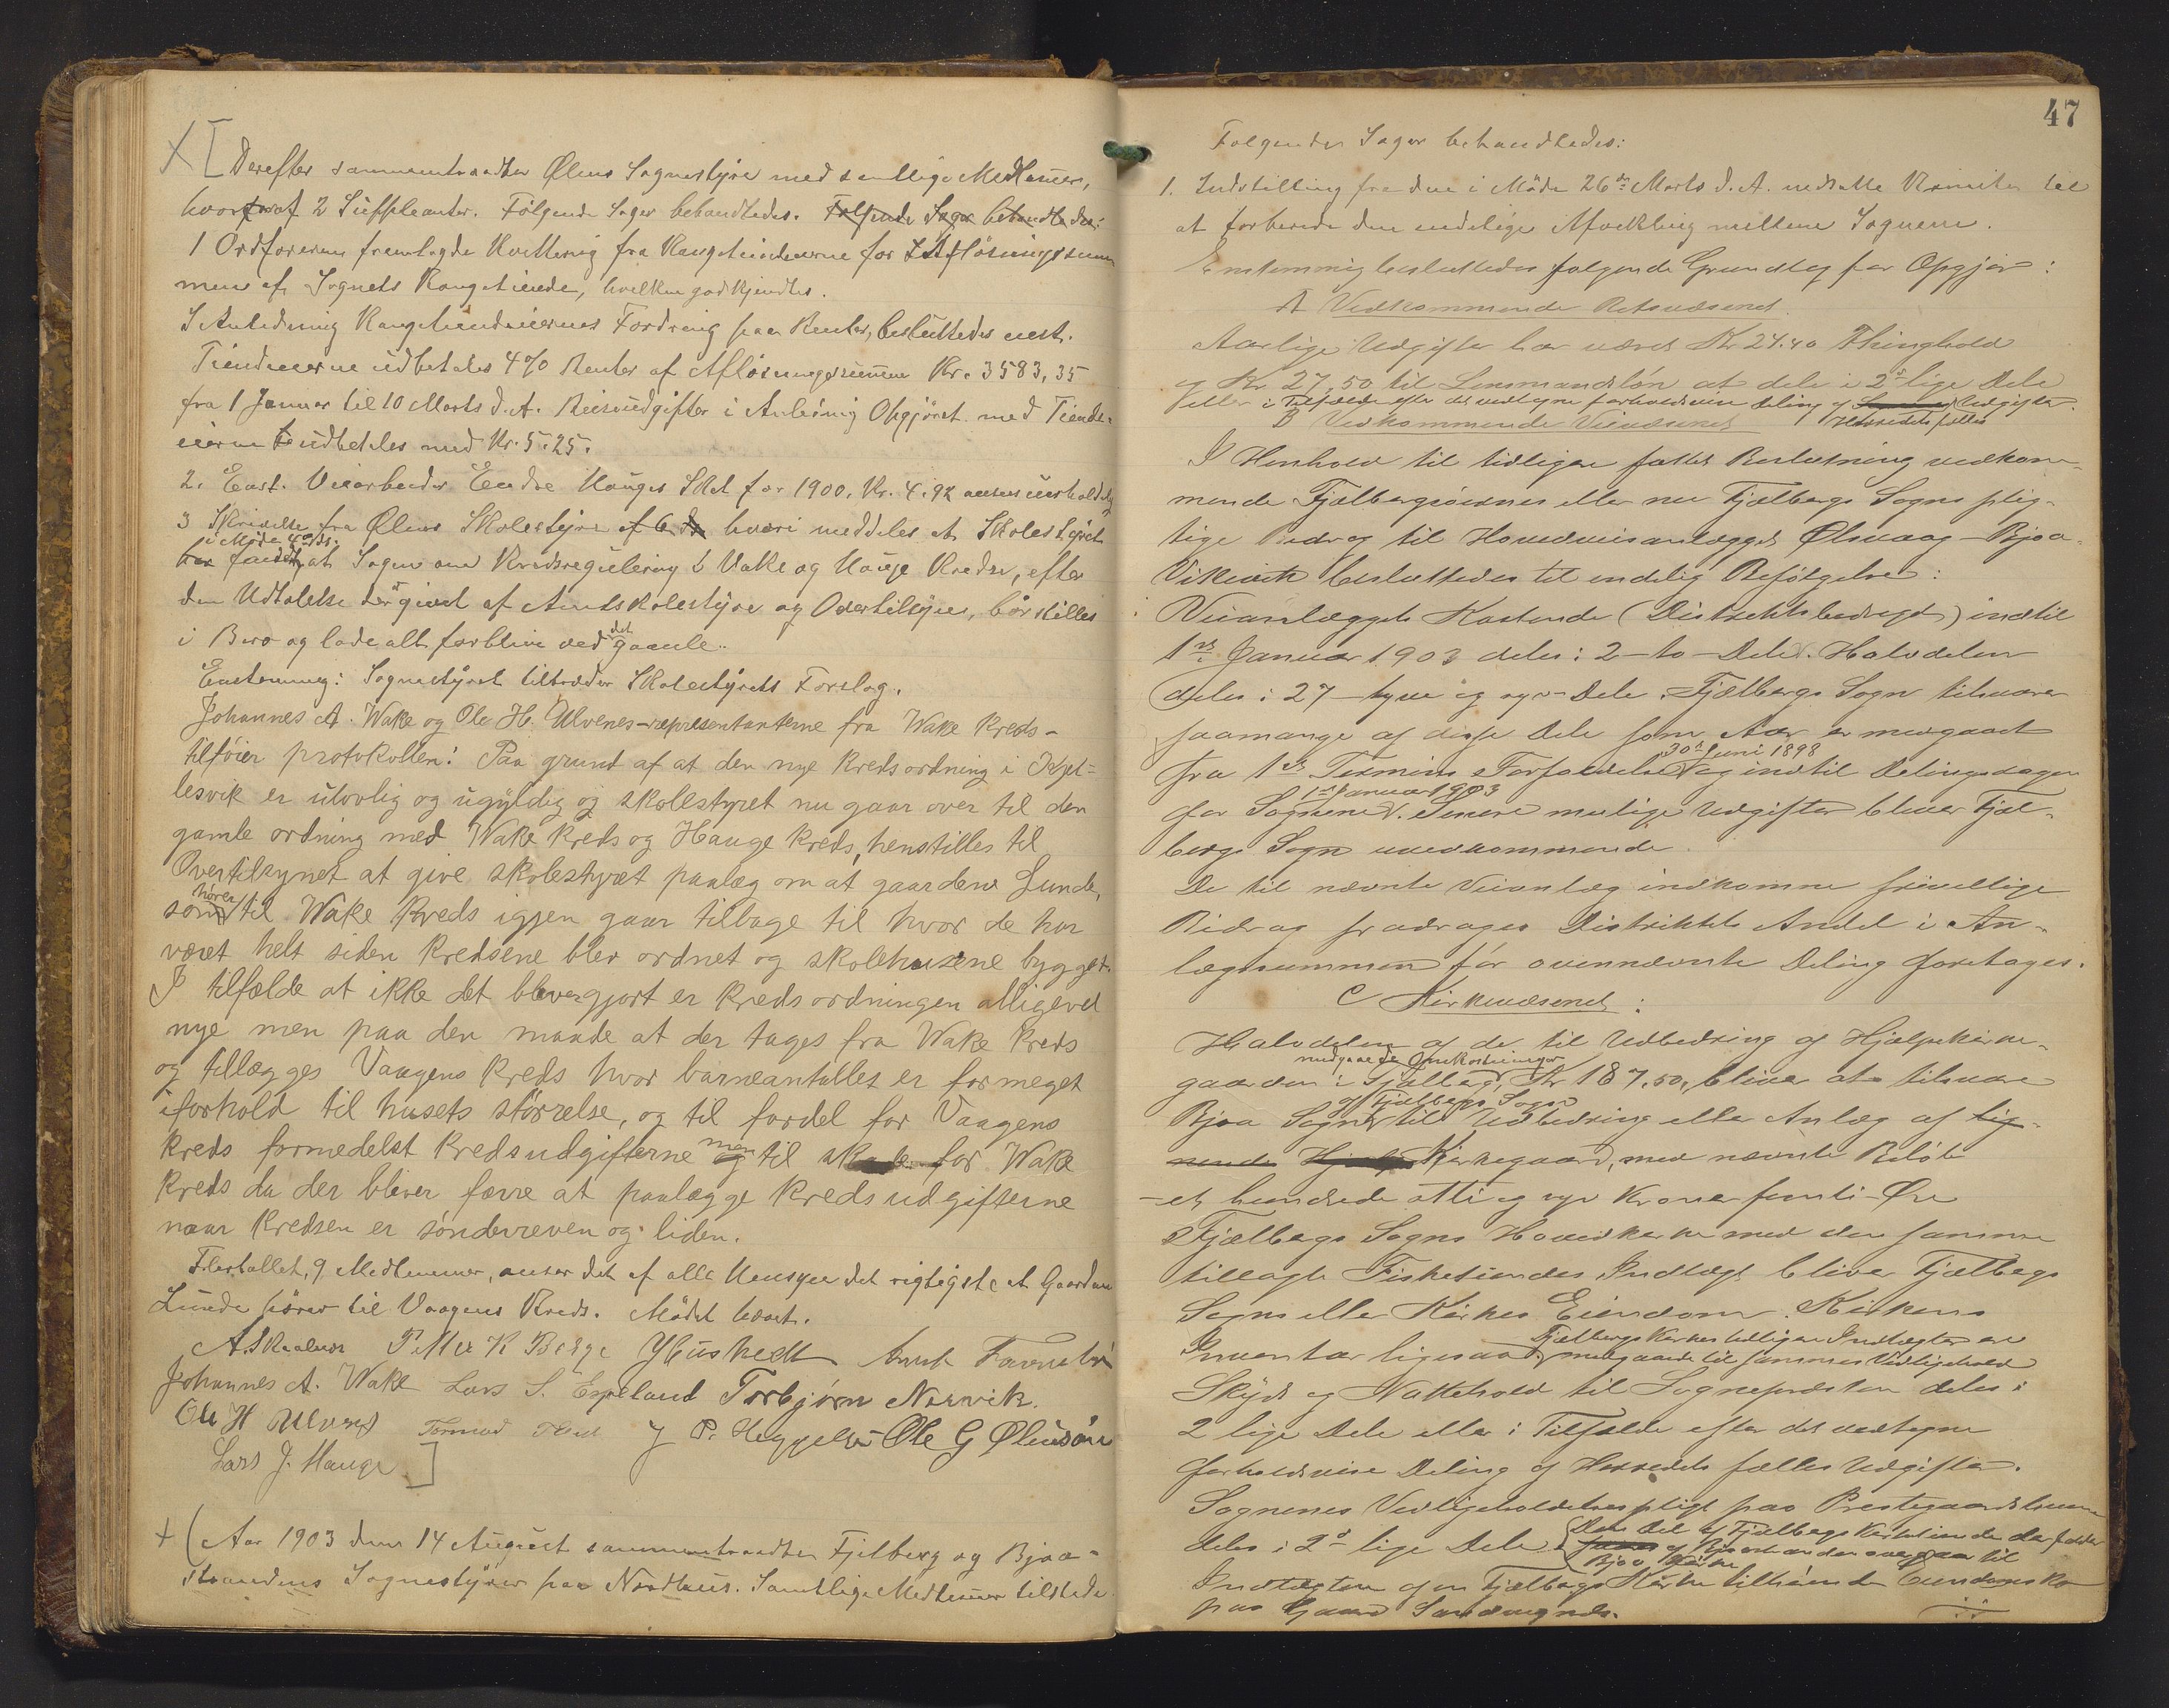 Derefter sammentraadte Ølens Sognestyre med samtlige Medlemer,
hvoraf 2 Suppleanter. Følgende Sager behandledes. Følgende Sager behandledes:
1 Ordføreren fremlagde Kvittering fra Kongetiendeeierne for Afløsningssum
men af Sognets Kongetiende, hvilken godkjendtes.
I Anledning Kongetiendeeiernes Fordring paa Renter, besluttedes enst.
Tiendeeierne udbetales 4% Renter af Afløsningssummen Kr. 3583,35
fra 1 Januar til 10 Marts d.A. Reiseudgifter i Anledning Opgjøret med Tiende-
eierne udbetales med Kr. 5.25.
2. Enst. Veiarbeider Endre Hauges Skat for 1900. Kr. 4.92 ansees uerholdelig
3 Skrivelse fra Ølens Skolestyre hvori meddeles at Skolestyret
i Møde
har fundet, at Sagen om Kredsregulering i Vake og Hauge Kredse, efter
den Udtalelse der er givet af Amtsskolestyre og Overtilsynet, bør stilles
i Bero og lade alt forblive ved det gamle.
Enstemmig: Sognestyret tiltræder Skolestyrets Forslag.
Johannes A. Wake og Ole H. Ulvenes-representanterne fra Wake Kreds-
tilføier protokollen: Paa grund af at den nye Kredsordning i Kjel-
lesvik er ulovlig og ugyldig og skolestyret nu gaar over til den
gamle ordning med Wake Kreds og Hauge Kreds, henstilles til
Overtilsynet at give skolestyret paalæg om at gaardene Lunde,
hører
som til Wake Kreds igjen gaar tilbage til hvor de har
været helt siden Kredsene blev ordnet og skolehusene bygget.
I tilfælde at ikke det bliver gjort er Kredsordningen alligevel
nye men paa den maade at der tages fra Wake Kreds
og tillægges Vaagens Kreds hvor barneantallet er formeget
iforhold til husets størrelse, og til fordel for Vaagens
Kreds formedelst Kredsudgifterne men til skade for Wake
Kreds da der bliver færre at paalægge Kredsudgifterne
naar Kredsen er sønderreven og liden.
Flertallet, 9 Medlemmer, anser det af alle Hensyn det rigtigste at Gaardene
Lunde hører til Vaagens Kreds. Mødet hævet.
A. Skaalnes Petter K Berge
Johannes A. Wake Lars S. Espeland Torbjørn Nærvik.
Ole H Ulvenes Tormod J P. Heggelbø Ole G Ølensøen
Lars J. Hauge
+ (Aar 1903 den 14 August sammentraadte Fjelberg og Bjoa-
strandens Sognestyrer paa Nordhus. Samtlige Medlemer tilstede.
47
Følgende Sager behandledes:
1. Indstilling fra den i Møde 26de Marts d.A. nedsatte Komite til
at forberede den endelige Afvikling mellem Sognene.
Enstemmig besluttedes følgende Grundlag for Opgjør:
A Vedkommende Retsvæsenet.
Aarlige Udgifter har været Kr 24.40 Thinghold
og Kr. 27,50 til Lensmandsløn at dele i 2 lige Dele
eller i Tilfælde efter det vedtagne forholdsvise Deling af Udgifter.
Herredets fælles
B Vedkommende Veivæsenet
I Henhold til tidligere fattet Beslutning vedkom-
mende Fjælbergøernes eller nu Fjelbergs Sogns plig-
tige Bidrag til Hovedveianlægget Ølsvaag-Bjoa-
Vikevik besluttedes til endelig Befølgelse:
Veianlæggets Kostende (Distriktsbidraget) indtil
1ste Januar 1903 deles i 2 - to - Dele. Halvdelen
deles i 27 - tyve og syv - Dele. Fjælbergs Sogn tilsvarer
saamange af disse Dele som Aar er medgaaet
30te Juni 1898
fra 1ste Termins Forfaldelse og indtil Delingsdagen
1ste Januar 1903
for Sognene. Senere mulige Udgifter bliver Fjæl-
bergs Sogn uvedkommende.
De til nævnte Veianlæg indkomne frivillige
Bidrag fradrages Distriktets Andel i An-
lægssummen før ovennævnte Deling foretages.
C Kirkevæsenet:
Halvdelen af de til Udbedring af Hjælpekirke-
medgaaede Omkostninger
gaarden i Fjælberg, Kr 187,50, bliver at tilsvare
af Fjælbergs Sogn
Bjoa Sogn til Udbedring eller Anlæg af
Kirkegaard, med nævnte Beløb
- et hundrede otti og syv Kroner femti Øre
Fjælbergs Sogns Hovedkirke med den samme
tillagte Fisketiendes Indtægt bliver Fjælbergs
Sogns eller Kirkes Eiendom. Kirkens
Fjælbergs Kirkes tidligere Indtægter er
Inventar ligesaa. medgaaede til sammes Vedligehold
Skyds og Nattehold til Sognepræsten deles i
2 lige Dele eller i Tilfælde efter det vedtagne
forholdsvise Deling af Herredets fælles Udgifter.
Sognenes Vedligeholdelsespligt paa Prestegaardshusene
deles i 2 lige Dele. Den Del af Fjælbergs Kirketiende der falder
Bjoa Kirke
Indtægten af en Fjælbergs Kirke tilhørende
paa Gaard